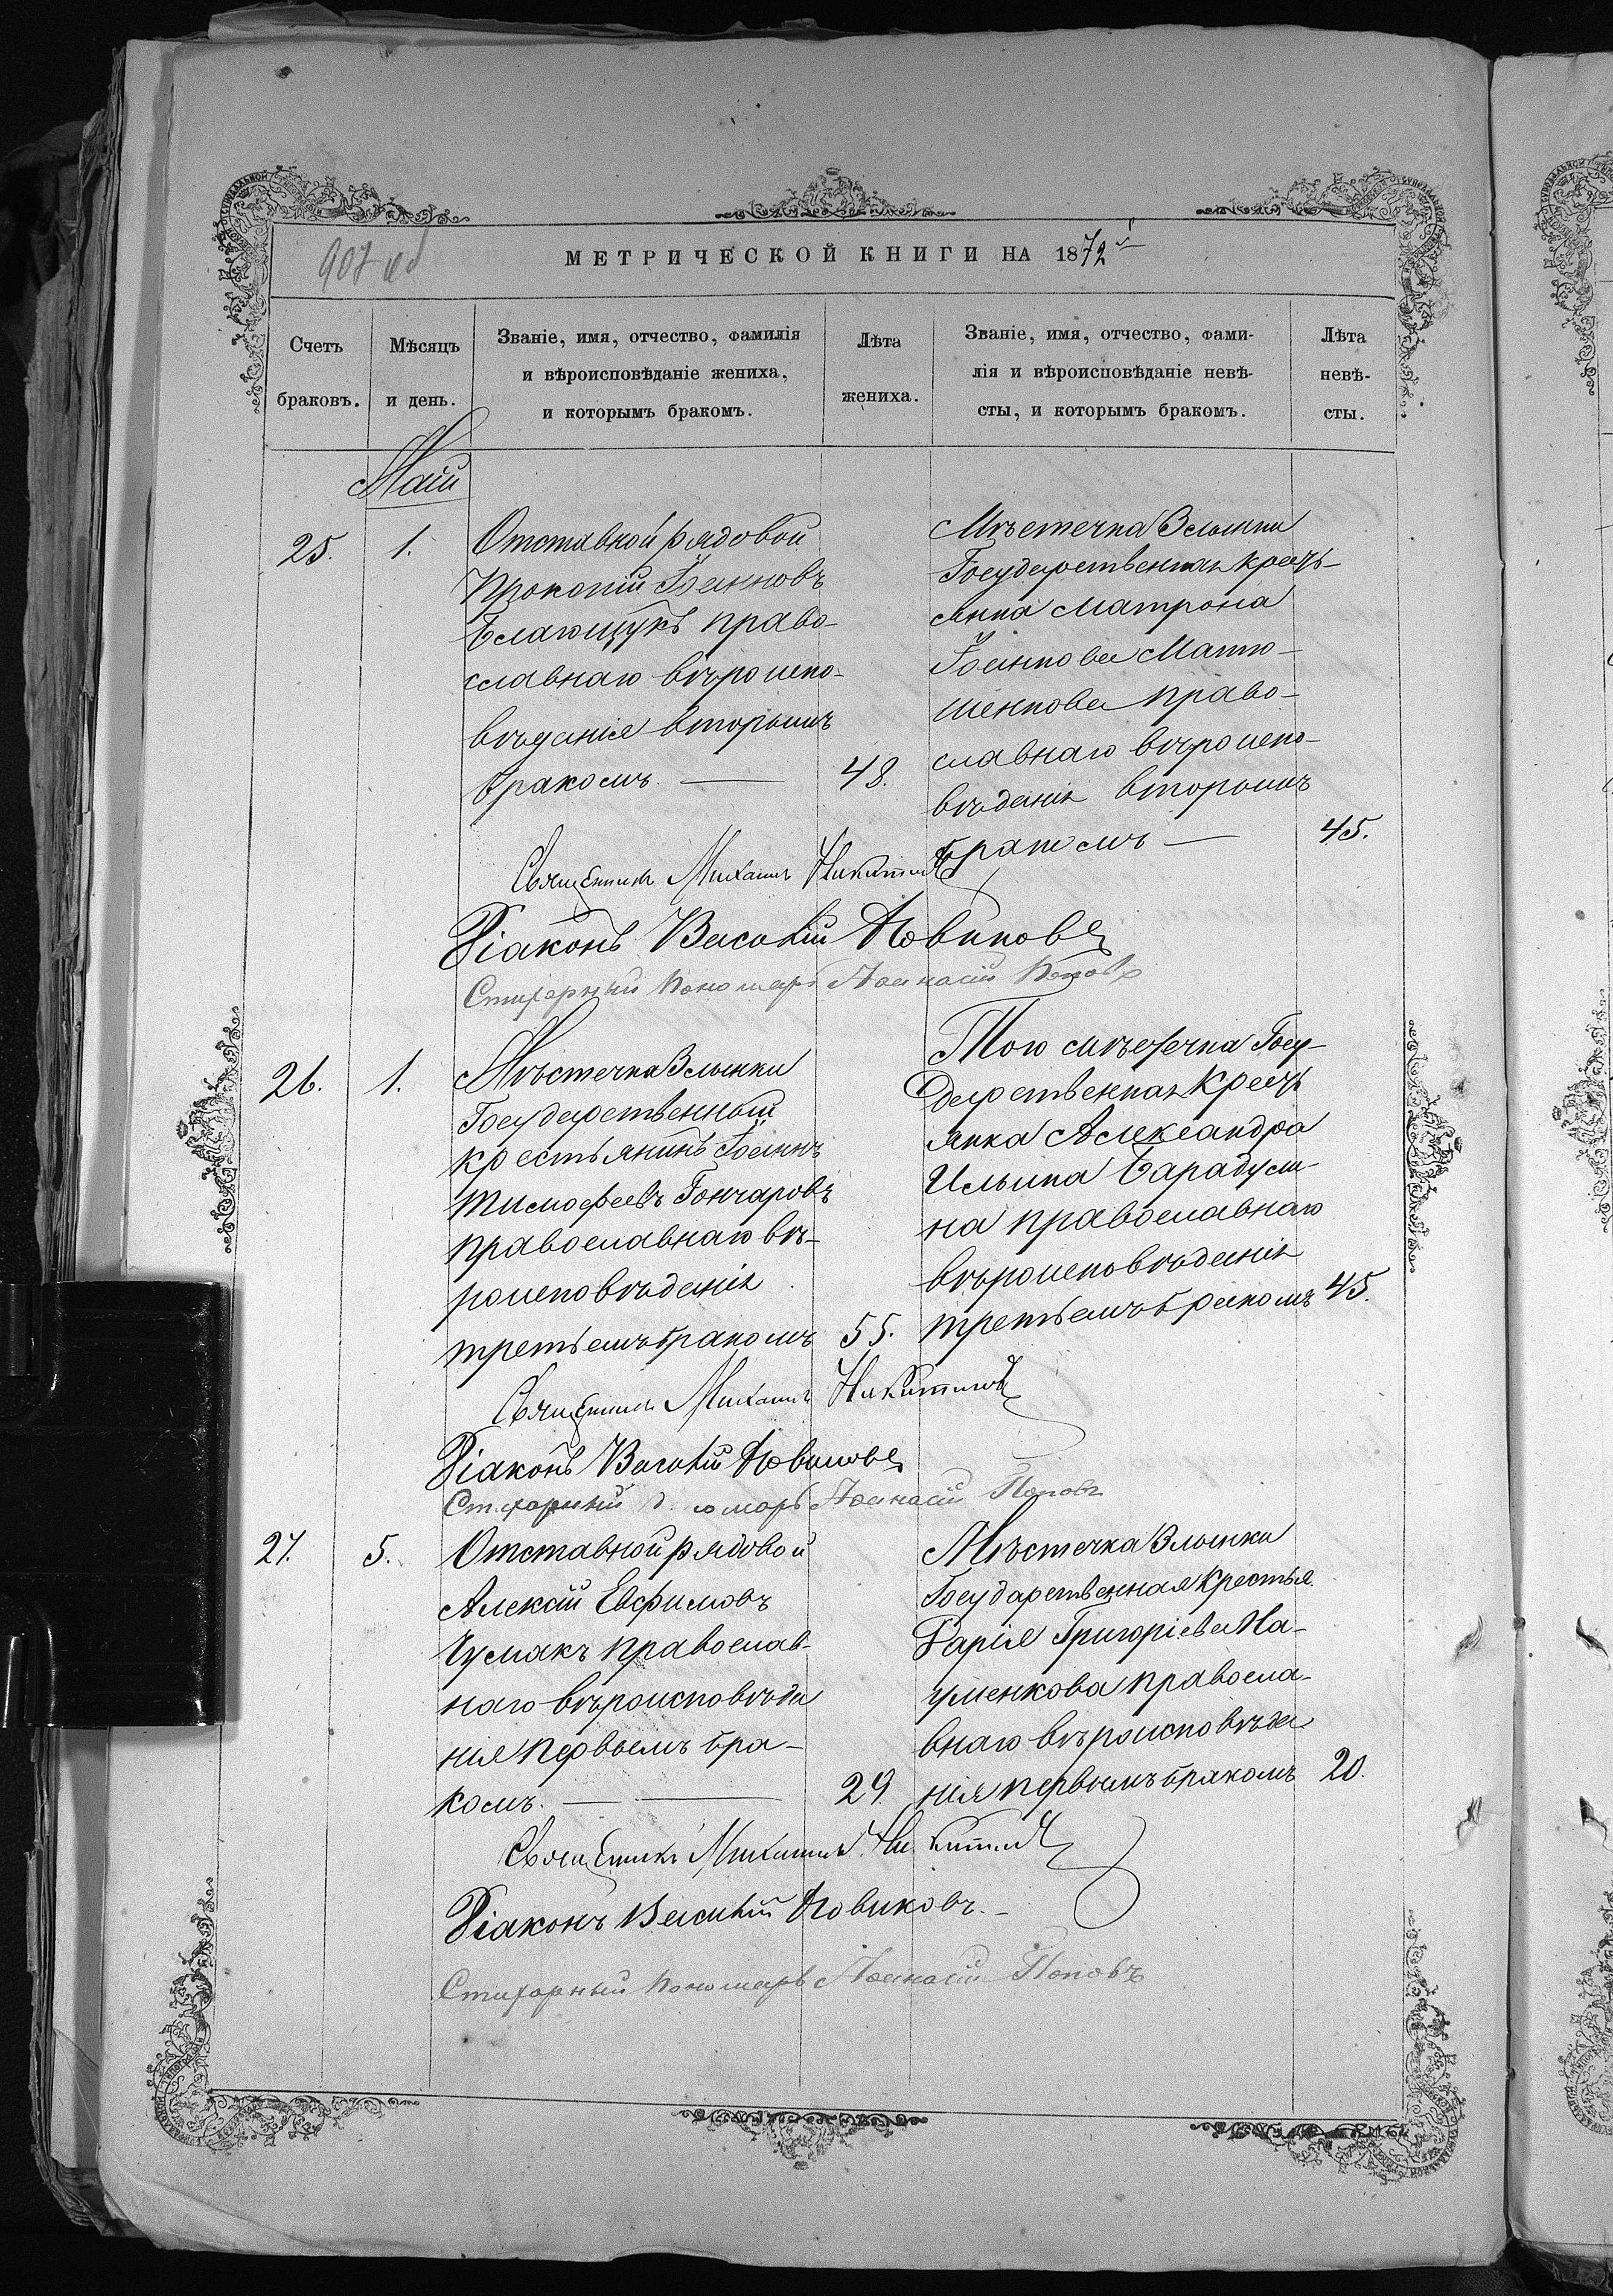 907 об
МЕТРИЧЕСКОЙ КНИГИ НА 1872й
Счетъ
браковъ.
Мѣсяцъ
и день.
Званіе, имя, отчество, фамилія
и вѣроисповѣданіе жениха,
и которымъ бракомъ.
Лѣта
жениха.
Званіе, имя, отчество, фами-
лія и вѣроисповѣданіе невѣ-
сты, и которымъ бракомъ.
Лѣта
невѣ-
сты.
Маій
25.
1.
Отставной рядовой
Прокопій Іоанновъ
право-
славнаго вѣроиспо-
вѣданія вторымъ
бракомъ.
48.
Мѣстечка Злынки
Государственная кресть-
янка Матрона
Іоаннова Матю-
шенкова право-
славнаго вѣроиспо-
вѣданія вторымъ
бракомъ
45.
Священникъ Михаилъ Никитинъ
Діаконъ Василій Новиковъ
Стихарный Пономарь Аѳанасій Поповъ
26.
1.
Мѣстечка Злынки
Государственный
крестьянинъ Іоаннъ
Тимофеевъ Гончаровъ
православнаго вѣ-
роисповѣданія
третьемъ бракомъ
55.
Того мѣстечка Госу-
дарственная кресть
янка Александра
Ильина Барабули-
на православнаго
вѣроисповѣданія
третьемъ бракомъ
45.
Священникъ Михаилъ Никитинъ
Діаконъ Василій Новиковъ
Стихарный Пономарь Аѳанасій Поповъ
27.
5.
Отставной рядовой
Алексій Евфимовъ
Чумакъ православ-
наго вѣроисповѣда
нія первымъ бра-
комъ.
29
Мѣстечка Злынки
Государственная крестья.
Дарія Григоріева На-
уменкова правосла-
внаго вѣроисповѣда
нія первымъ бракомъ
20.
Священникъ Михаилъ Никитинъ
Діаконъ Василій Новиковъ.
Стихарный Пономарь Аѳанасій Поповъ